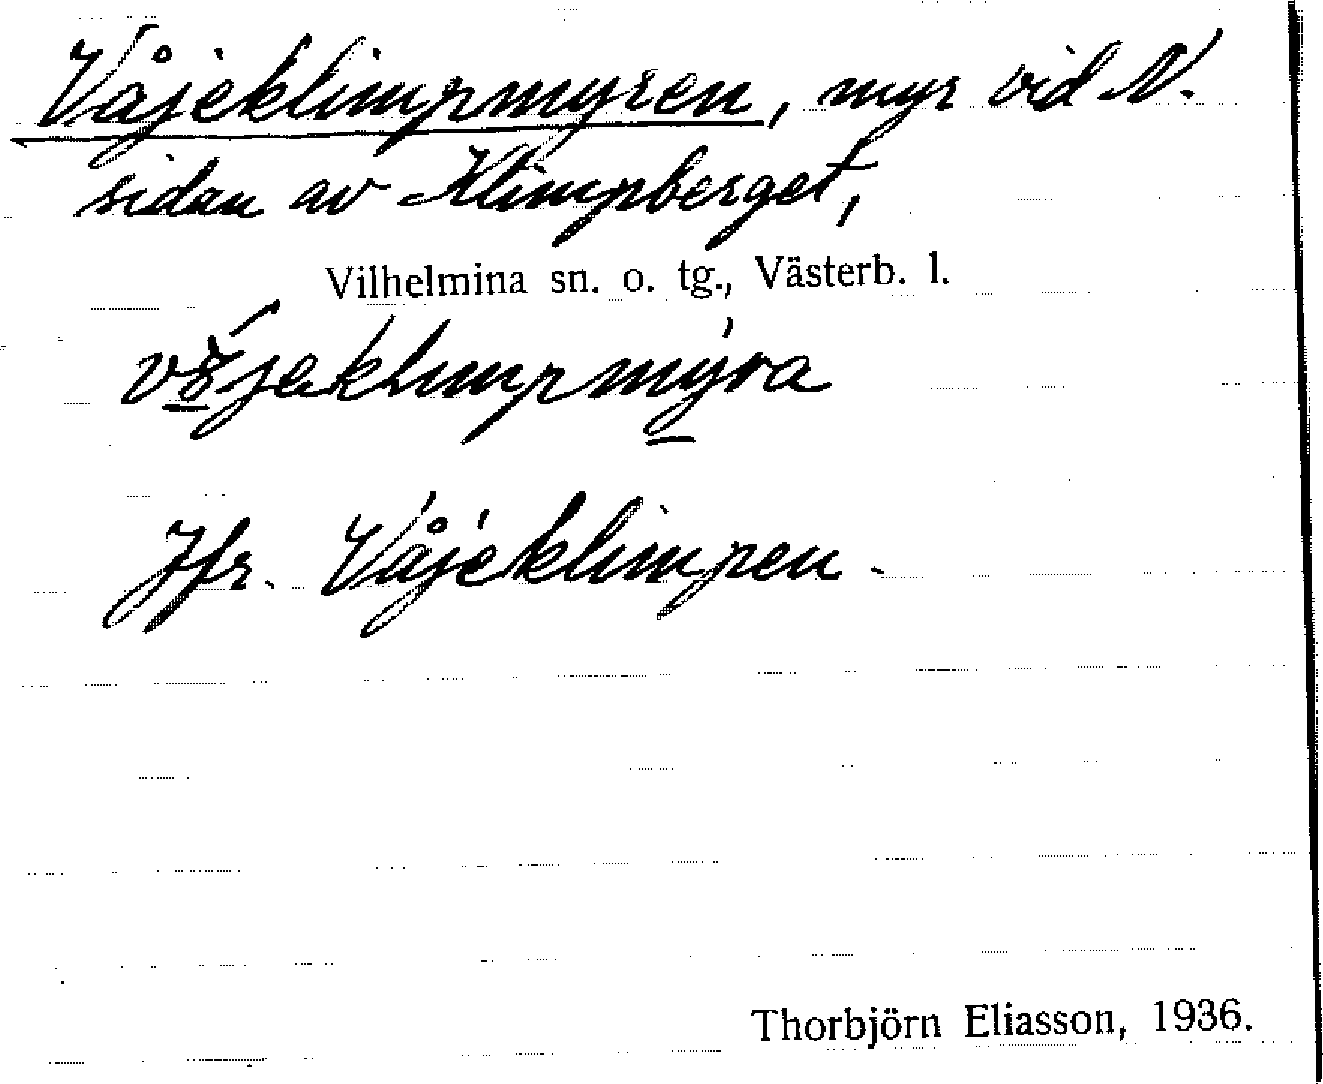 Våjeklimpmyren, myr vid N.
sidan av Klimpberget,
Vilhelmina sn. o. tg., Västerb. l.
Jfr. Våjeklimpen.
Thorbjörn Eliasson, 1936.